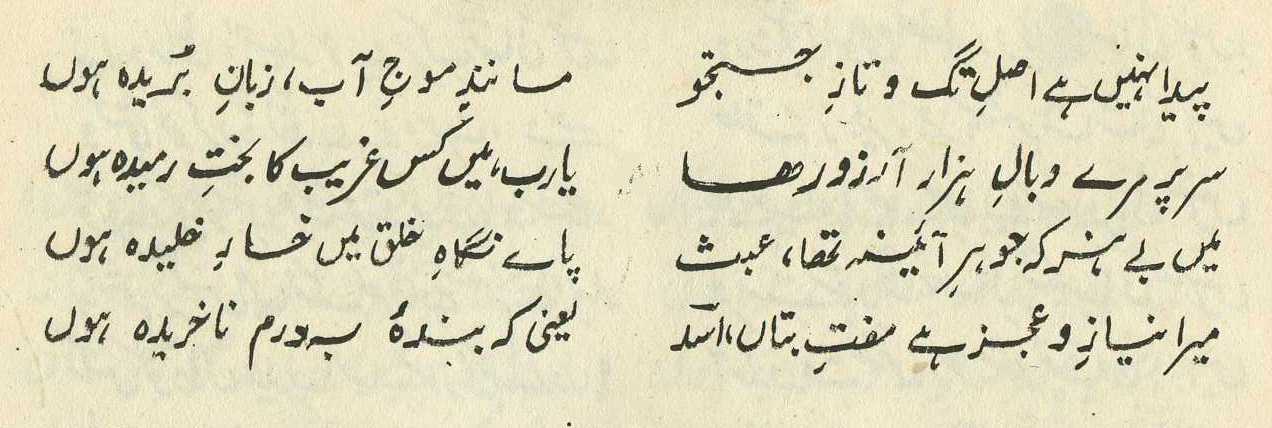 پیدا نہیں ہے اصلِ تگ و تازِ جستجو مانندِ موجِ آب، زبانِ بُریدہ ہوں
سر پر مرے وبالِ ہزار آرزو رہا یارب، میں کس غریب کا بختِ رمیدہ ہوں
میں بے ہنر کہ جوہرِ آئینہ تھا، عبث پاے نگاہِ خلق میں خارِ خلیدہ ہوں
میرا نیاز و عجز ہے مفتِ بتاں، اسدؔ یعنی کہ بندۂ بہ درم ناخریدہ ہوں